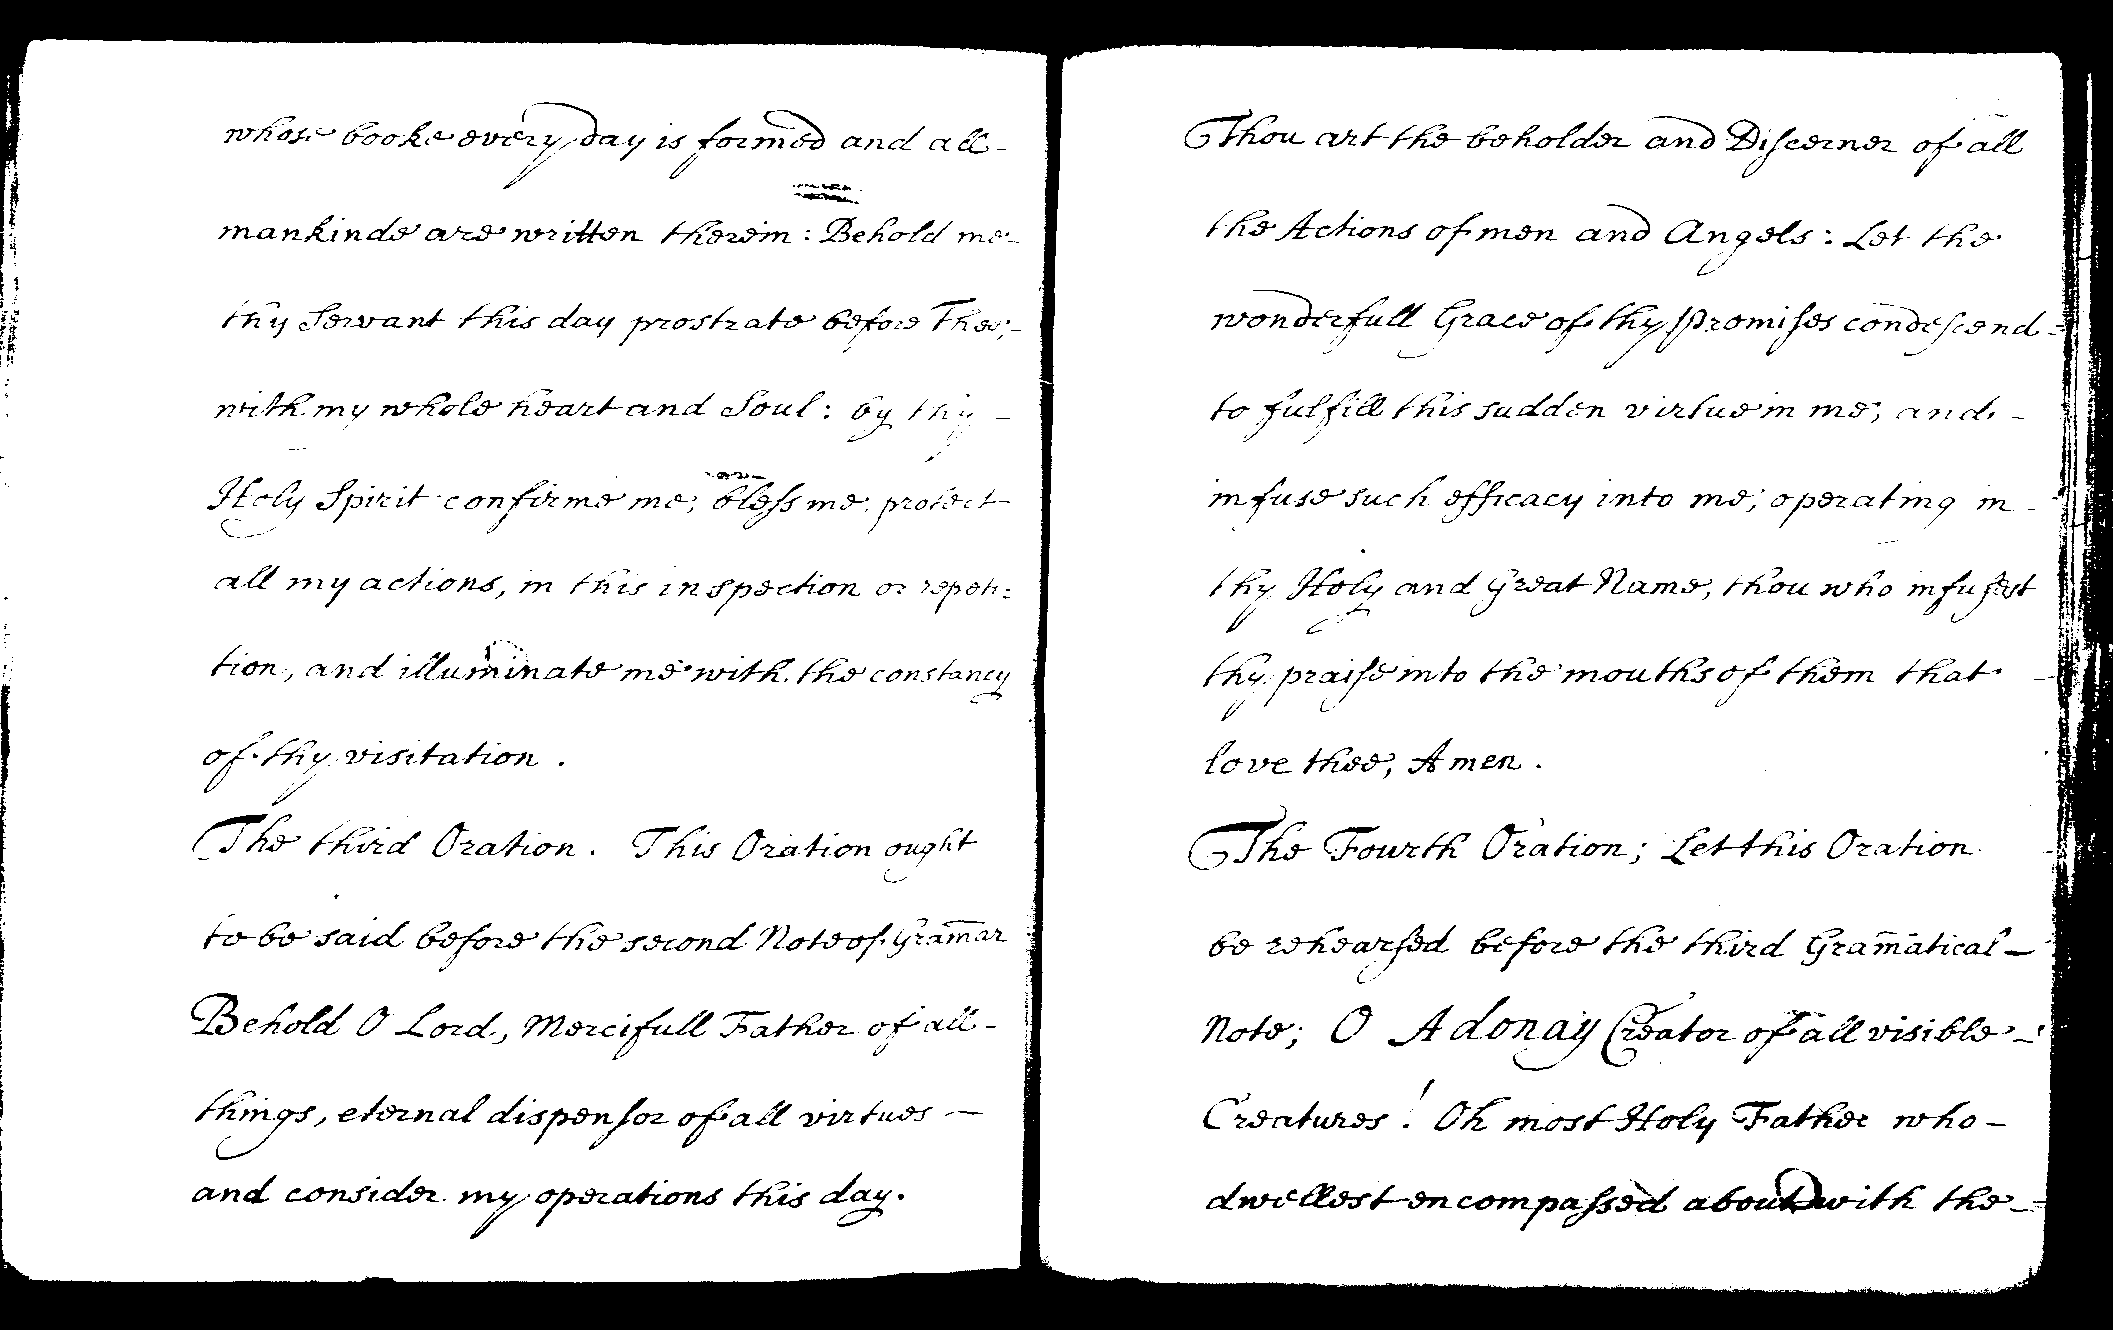 whose booke every day is formed and all -
mankinde are written therein : Behold me -
thy Servant this day prostrate before Thee; -
with my whole heart and Soul : by thy -
Holy Spirit confirme me; bless me, protect
all my actions, in this inspection or repeti:
tion, and illuminate me with the constancy
of thy visitation .
The third Oration . This Oration ought
to be said before the second Note of Gram̄ar
Behold O Lord, Mercifull Father of all -
things, eternal dispensor of all virtues —
and consider my operations this day.
Thou art the beholder and Discerner of all
the Actions of men and Angels : Let the
wonderfull Grace of thy Promises condescend =
to fulfill this sudden virtue in me; and -
infuse such efficacy into me; operating in -
thy Holy and Great Name, thou who infusest
thy praise into the mouths of them that -
love thee, Amen .
The Fourth Oration; Let this Oration
be rehearsed before the third Gram̄atical -
Note; O Adonay Creator of all visible -
Creatures ! Oh most Holy Father who -
dwellest encompassed about with the -